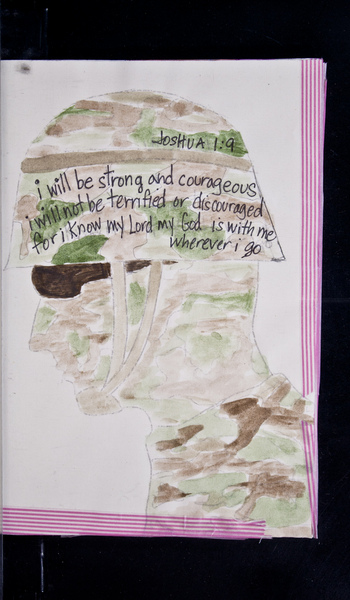 JOSHUA 1:9
i will be strong and courageous
i will not be terrified or discouraged
for i know my Lord my God is with me
wherever i go